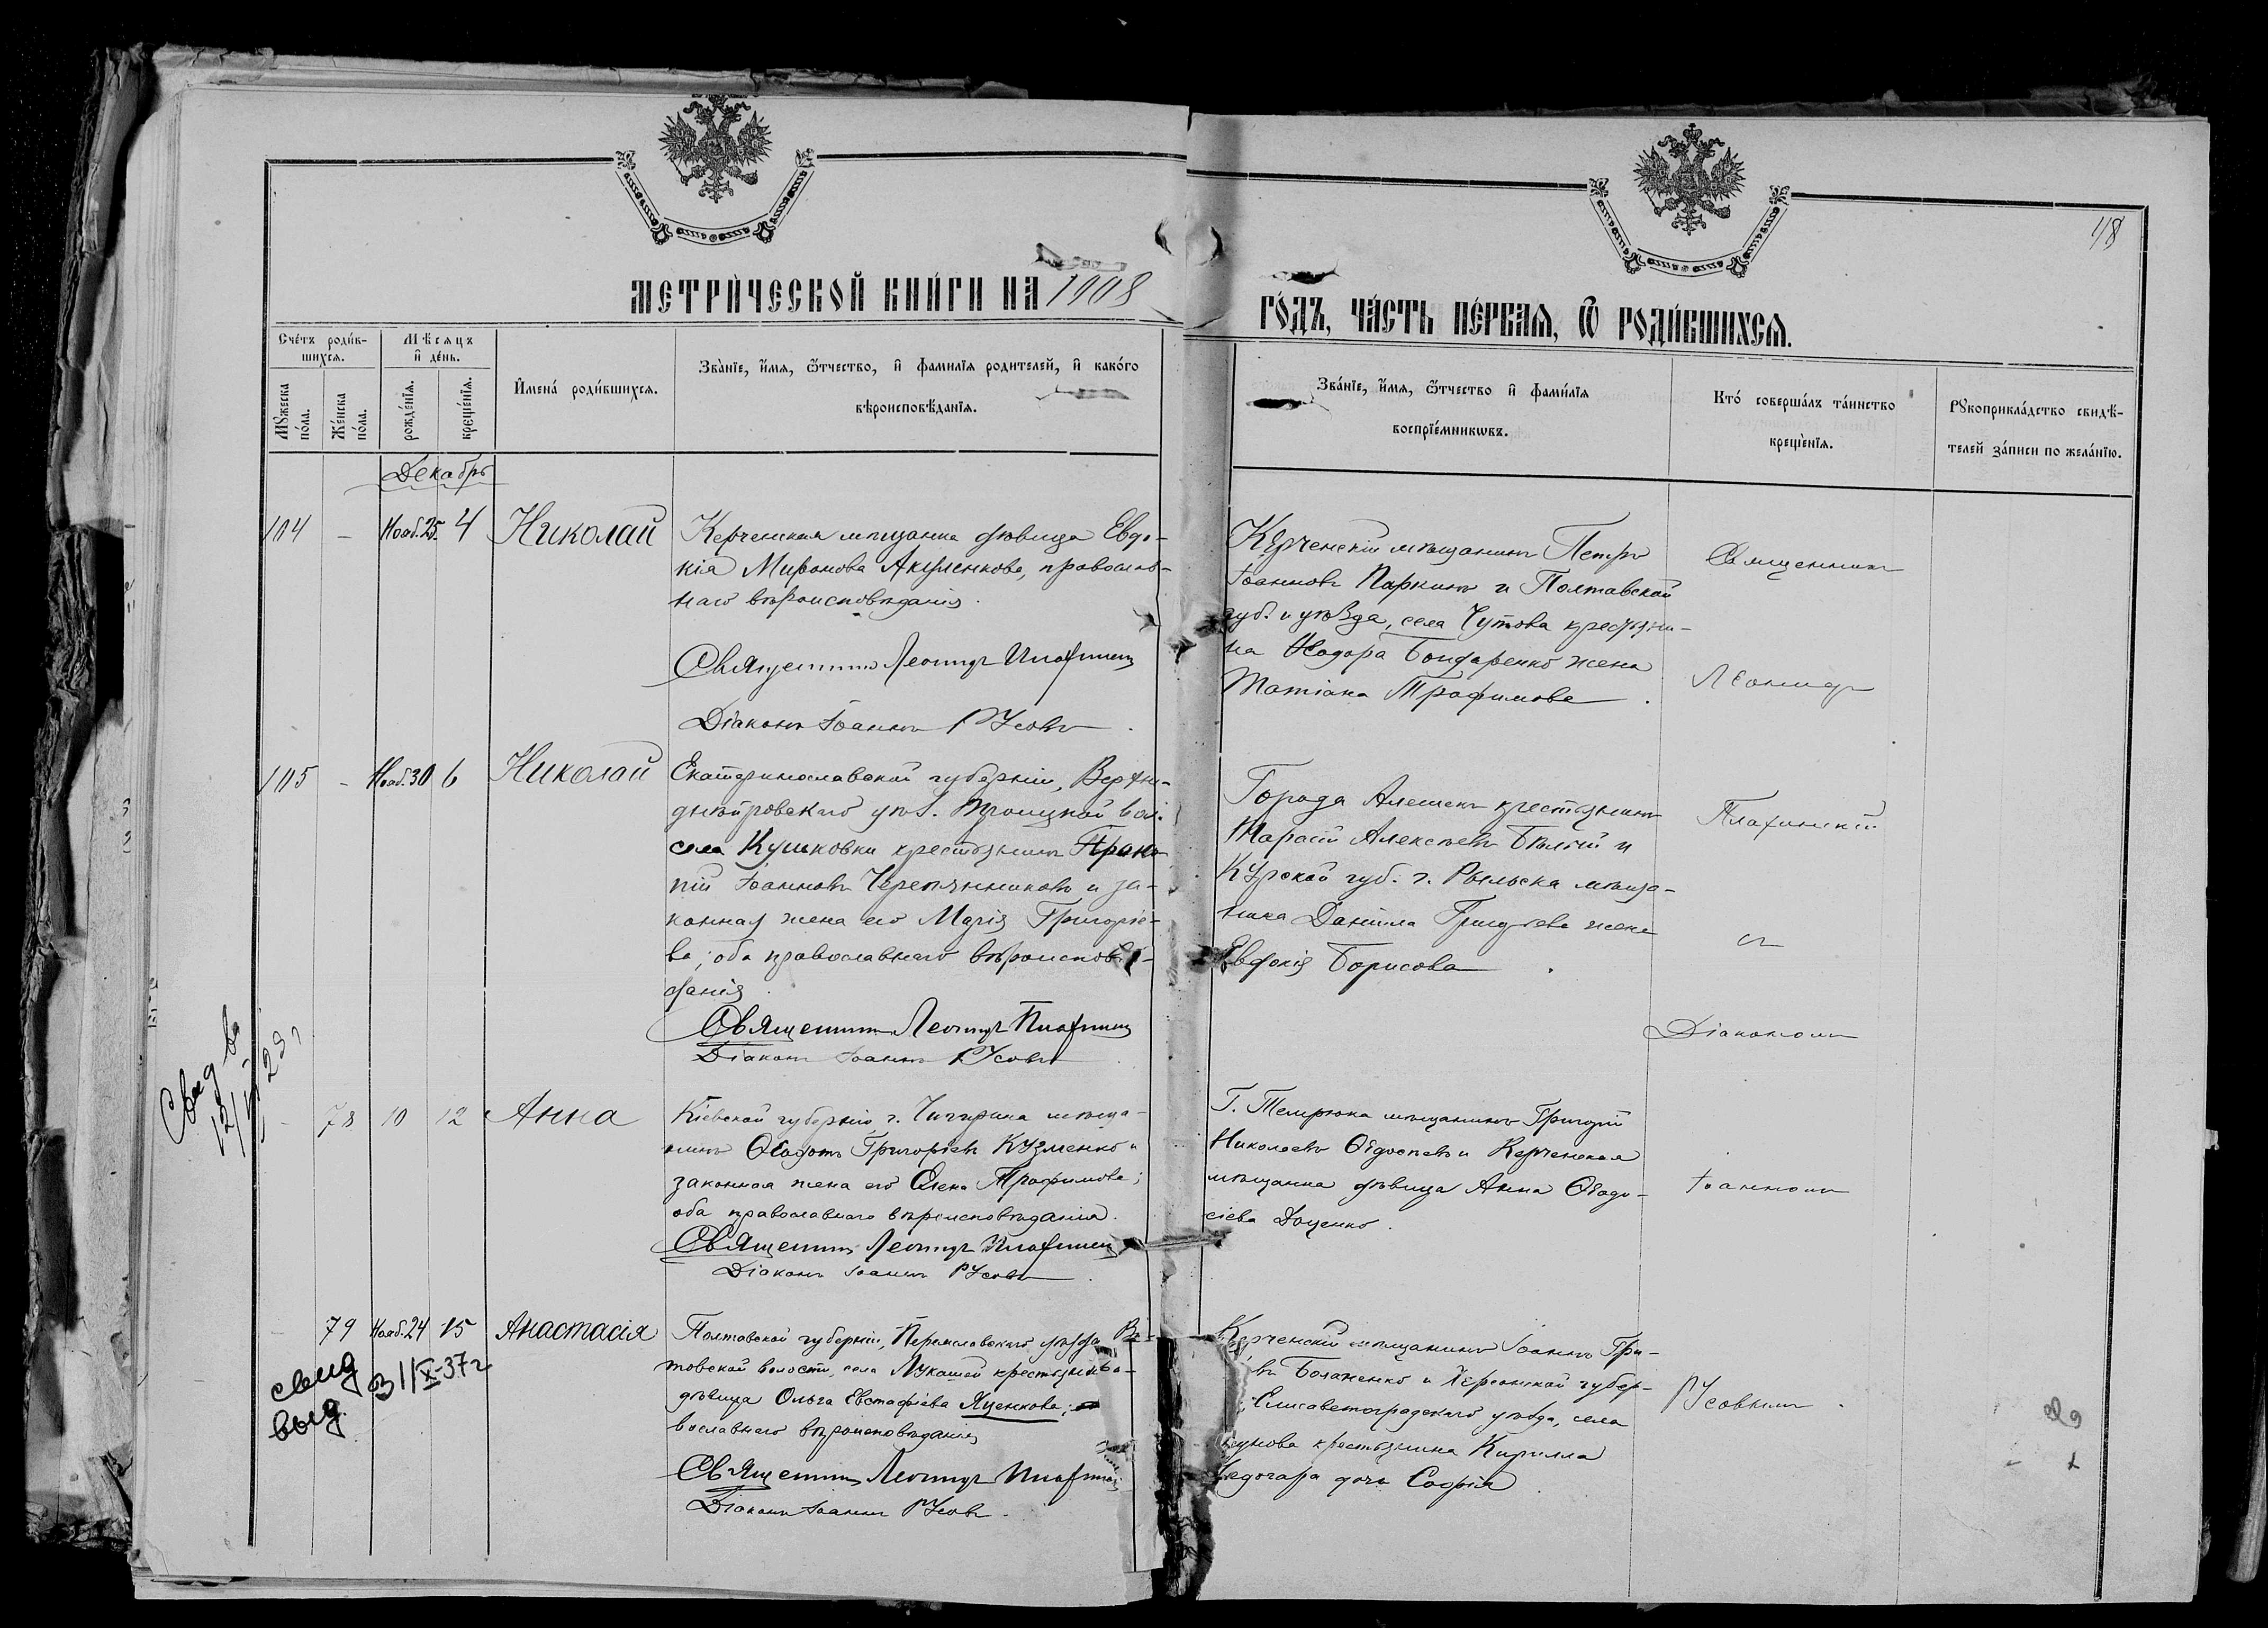 МЕТРИ́ЧЕСКОЙ КНИ́ГИ НА 1908
ГО́ДЪ, ЧА́СТЬ ПЕ́РВАЯ, Ѡ РОДИ́ВШИХСЯ.
48
Сче́тъ роди́в-
шихся.
Мѣсяцъ
и де́нь.
Мꙋжеска
по́ла.
Же́нска
по́ла.
рожде́нїя.
креще́нїя.
Имена́ роди́вшихся.
Зва́нїе, и́мя, ѻ́тчество, и фамилїя родителей, и како́го
вѣроисповѣ́данїя.
Зва́нїе, и́мя, ѻ́тчество и фами́лїя
воспрїе́мникѡвъ.
Кто́ соверша́лъ та́инство
креще́нїя.
Рꙋкоприкла́дство свидѣ́-
телей за́писи по жела́нїю.
Декабрь
104 - Нояб. 25. 4 Николай
Керченская мѣщанка дѣвица Евдо-
кія Миронова Акуленкова, православ-
наго вѣроисповѣданія.
Священникъ Леонидъ
Діаконъ Іоаннъ Русовъ.
Керченскій мѣщанинъ Петръ
Іоанновъ Паркинъ и Полтавской
губ. и уѣзда, села Чутова крестьяни-
на Ѳедора Бондаренко жена
Татіана Трофимова.
105 - Нояб. 30 6 Николай
Екатеринославской губерніи, Верхне-
днѣпровскаго уѣз. Троицкой вол.
села Кульковки крестьянинъ Проко-
пій Іоанновъ Черепянниковъ и за-
конная жена его Марія Григорье-
ва; оба православнаго вѣроисповѣ-
данія.
Священникъ Леонидъ
Діаконъ Іоаннъ Русовъ
Города Алешекъ крестьянинъ
Тарасій Алексѣевъ Бѣлый и
Курской губ. г. Рыльска мѣща-
нина Даніила Григорьева жена
Евдокія Борисова.
Свид-во
- 78 10 12 Анна
Кіевской губерніи, г. Чигирина мѣща-
нинъ Ѳеодотъ Григоріевъ Кузменко и
законная жена его Елена Трофимова;
оба православнаго вѣроисповѣданія.
Священникъ Леонидъ
Діаконъ Іоаннъ Русовъ.
Г. Темрюка мѣщанинъ Григорій
Николаевъ Ѳедосѣевъ и Керченская
мѣщанка дѣвица Анна Ѳеодо-
сіева Доценко.
79 Нояб. 24 15 Анастасія
Полтавской губерніи, Переяславскаго уѣзда
товской волости, села Лукашей крестьянка-
дѣвица Ольга Евстафіева Яценкова;
вославнаго вѣроисповѣданія
Священникъ Леонидъ
Діаконъ Іоаннъ Русовъ.
Керченскій мѣщанинъ Іоаннъ Гри-
и Херсонской губер-
Елисаветградскаго уѣзда, села
крестьянина Кирилла
дочь Софія.
свид
выд.
31/X-37г
Священникъ
Леонидъ
съ
Діакономъ
Іоанномъ
Русовымъ.